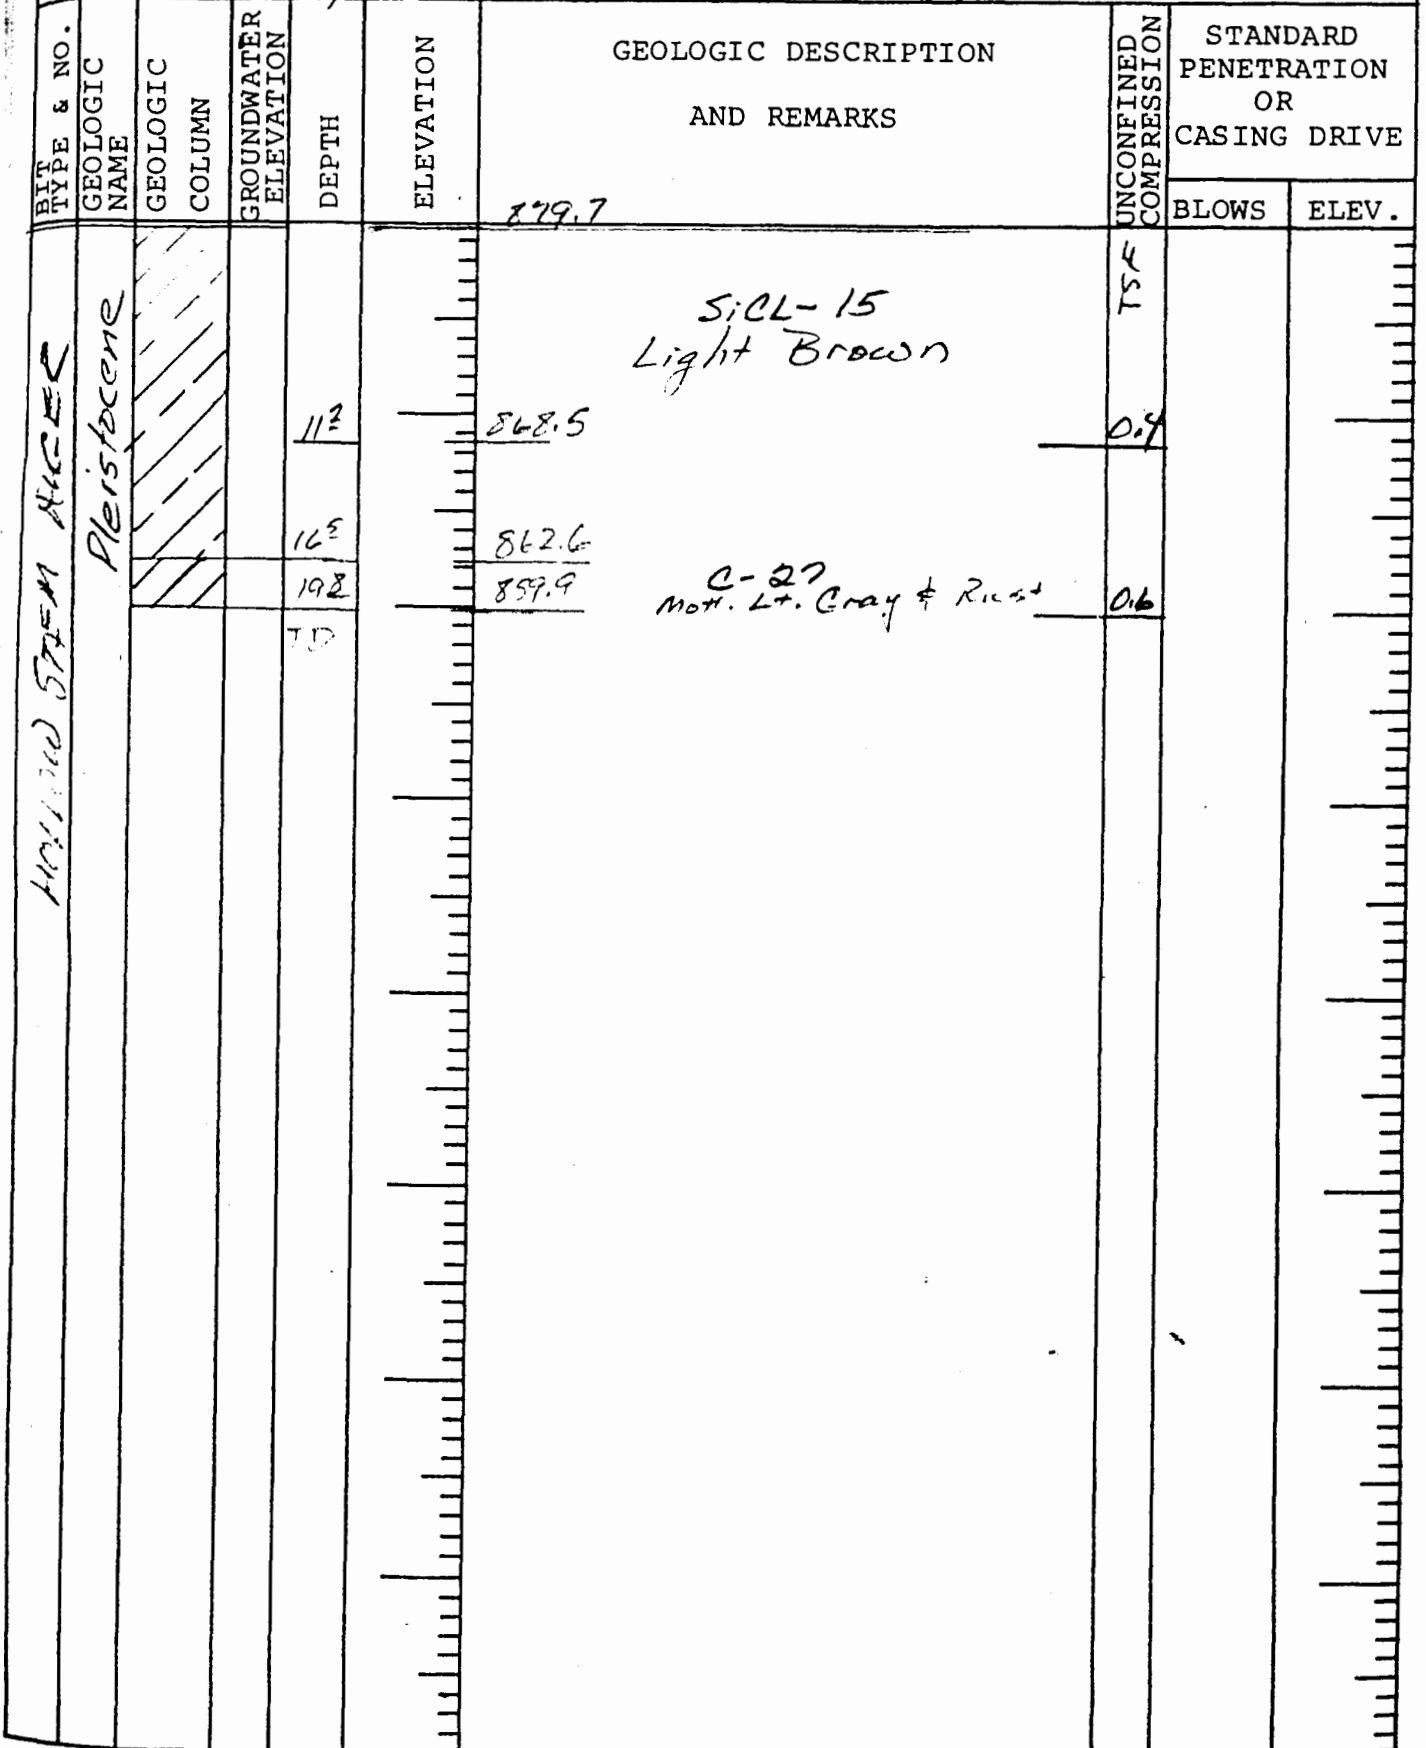 BIT
TYPE & NO.
GEOLOGIC
NAME
GEOLOGIC
COLUMN
GROUNDWATER
ELEVATION
DEPTH
ELEVATION
GEOLOGIC DESCRIPTION
AND REMARKS
879.7
UNCONFINED
COMPRESSION
STANDARD
PENETRATION
OR
CASING DRIVE
BLOWS
ELEV.
HOLLOW STEM AUGER
Pleistocene
TSF
SiCL-15
Light Brown
11² 868.5 0.4
16⁵ 862.6
19⁸ 859.9 C-27
Mott. Lt. Gray & Rust 0.6
TD